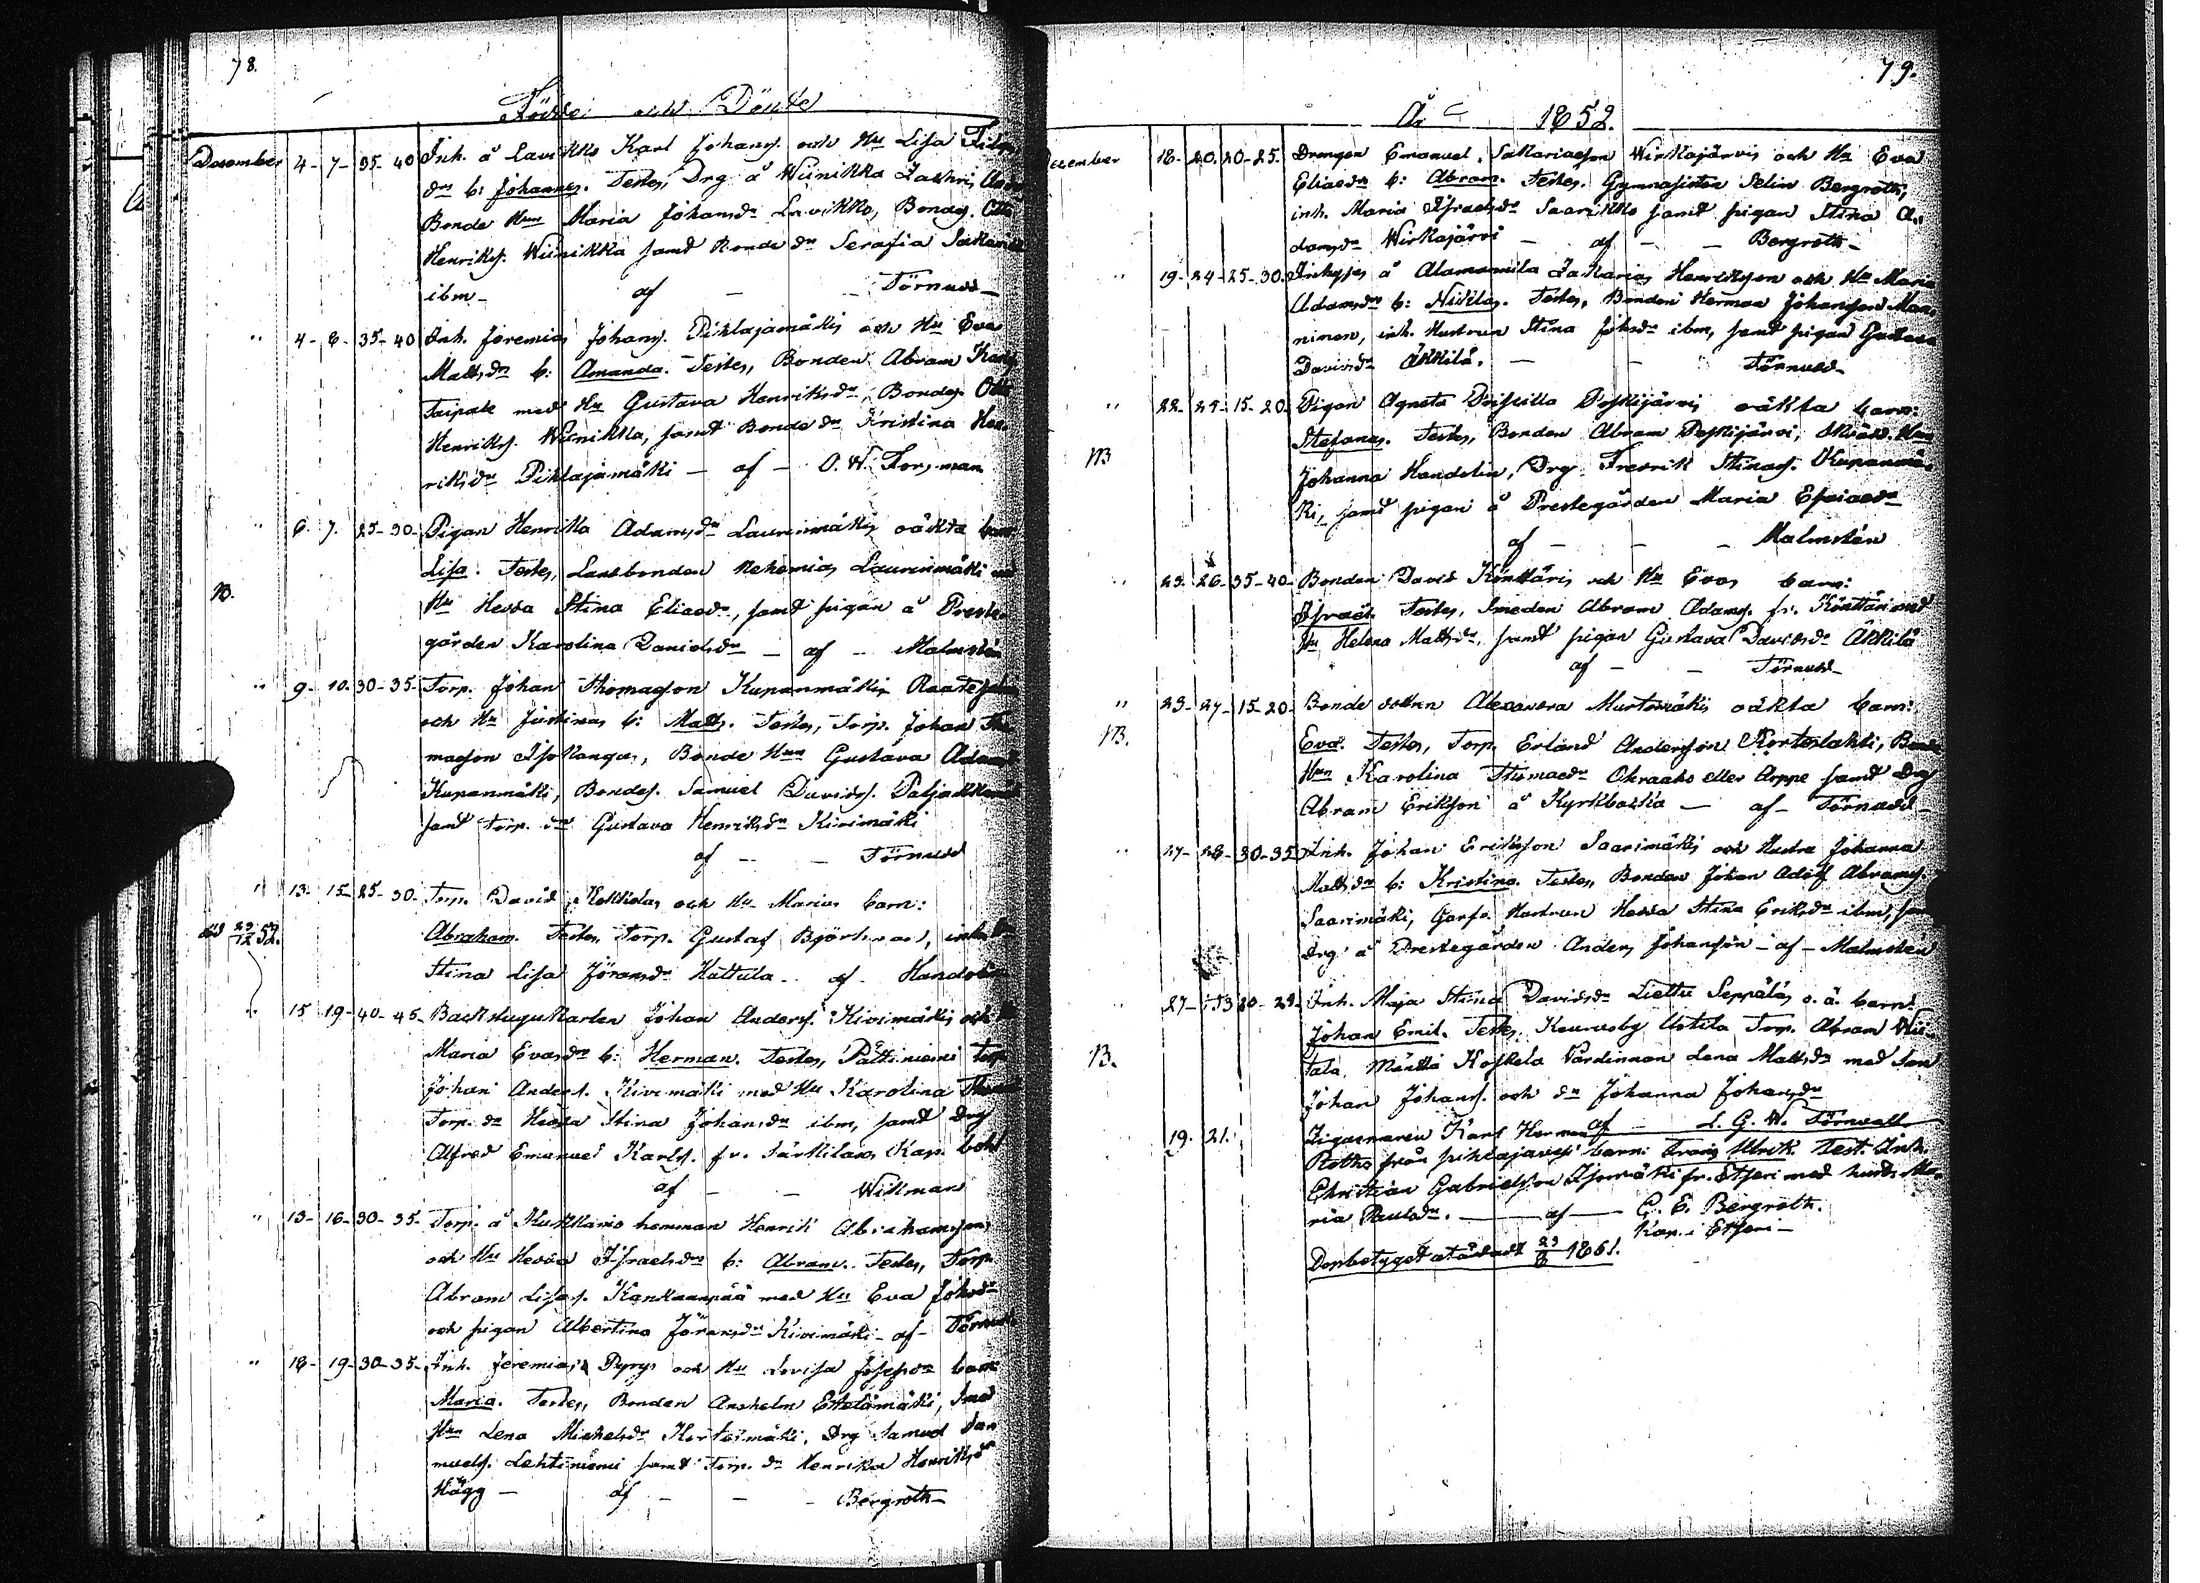 78.
Födde och Döpte
December 4-7-35-40 Inh. å Lavikko Karl Johans. och Hu Lisa
dr b: Johannes. Testes, Drg å Wiinikka Zachris
Bonde Hun Maria Johansdr Lavikko, Bondes. Otto
Henriks. Wiinikka samt Bonde dr Serafia
ibm - af - - Törnudd -
" 4-8-35-40 Inh. Jeremias Johans. Pihlajamäkis och Hu Eva
Mattsdr b: Amanda. Testes, Bonden Abram
Taipale med Hu Gustava Henriksdr, Bondes. Otto
Henriks. Wiinikka, samt Bonde dr Kristina Hen-
riksdr Pihlajamäki - af - O. W. Forsman
" 6. 7. 25-30. Pigan Henrika Adamsdr Laurinmäkis oäkta barn
Lisa. Testes, Landbonden Nehemias Laurinmäki
B. Hu Hedda Stina Eliaedr, samt pigan å Preste-
gården Karolina Danielsdr - af - Malmstén
" 9-10-30-35- Torp. Johan Thomasson Kupanmäkis
och Hu Justinas b: Matts. Testes, Torp. Johan Tho-
masson Isokangas, Bonde Hun Gustava
Kupanmäki, Bondes. Samuel Davids.
samt Torp. dr Gustava Henriksdr Kivimäki
af - - Törnudd
" 13-15-25-30- Torp. David Kokkolas och Hu Marias barn:
död 29/12 52. Abraham. Testes, Torp. Gustaf
Stina Lisa Göransdr Kattula - af - Handolin
" 15 19-40-45- Backstugukarlen Johan Anders. Kivimäkis och
Maria Evasdr b: Herman. Testes, Pättiniemi Torp.
Johan Anders. Kivimäki med Hu Karolina
Torp. dr Hedda Stina Johansdr ibm, samt Drg
Alfred Emanuel Karls. fr. Särkilaks Kap. bol
af - - Wikman
" 13-16-30-35- Torp. å hemman Henrik Abrahamsson
och Hu Hedda Israelsdr b: Abram. Testes, Torp.
Abram Lisas. Kankaanpää med Hu Eva Johsdr
och pigan Albertina Göransdr Kivimäki - af - Törnudd
" 18-19-30-35- Inh. Jeremias Pyrys och Hu Lovisa Josefsdr barn
Maria. Testes, Bonden Anshelm Etelämäki, Smed
Hun Lena Michelsdr Kortesmäki, Drg Samuel Sa-
muels. Lehtiniemi samt Torp. dr Henrika Henriksdr
Hägg - af - - Bergroth -
79.
År 1852.
December 18-20-20-25. Drengen Emanuel Sakariasson Wirkajärvis och Hu Eva
Eliaedr b: Abram. Testes, Gymnasisten Selin Bergroth,
inh. Maria Israelsdr Saarikko samt pigan Stina A-
damsdr Wirkajärvi - af - - Bergroth -
" 19-24-25-30. Inhyses å Alamannila Zakarias Henriksson och Hu Maria
Adamsdr b: Nicklas. Testes, Bonden Herman Johansson Man-
ninen, inh. Hustrun Stina Johsdr ibm, samt pigan Gustava
Davidsdr Äkkilä. - - Törnudd -
" 22-24-15-20. Pigan Agneta Priscilla Poskijärvis oäkta barn:
Stefanus. Testes, Bonden Abram Poskijärvi, Hun
B Johanna Handolin, Drg Fredrik Stinas. Kupanmä-
ki, samt pigan å Prestegården Maria Esaiaedr
af - - - Malmstén
" 23-26-35-40- Bonden David Könttäris och Hu Evas barn:
Israel. Testes, Smeden Abram Adams. fr. Könttäri med
Hu Helena Mattsdr, samt pigan Gustava Davidsdr Äkkilä
af - - Törnudd -
" 23-27-15-20- Bonde dottren Alexandra Murtomäkis oäkta barn:
B. Eva. Testes, Torp. Erland Andersson Kortelahti, Bonde
Hun Karolina Thomaedr Okraaho eller Arppe samt Drg
Abram Eriksson å Kyrkbacka - af - Törnudd -
" 27-28-30-35 Inh. Johan Eriksson Saarimäkis och Hustru Johanna
Mattsdr b: Kristina. Testes, Bonden Johan Adolf Abrams.
Saarimäki, Garfv. Hustrun Hedda Stina Eriksdr ibm, samt
Drg å Prestegården Anders Johansson - af - Malmstén
" 27- 20-25- Inh. Maja Stina Davidsdr Liettu Seppäläs o.ä. barn:
Johan Emil. Testes, Keuruuby Torp. Abram Wii-
B. tala, Mänttä Koskela Värdinnan Lena Mattsdr med Son
Johan Johans. och dr Johanna Johansdr
af - L. G. W. Törnudd
19. 21. Ziguenaren Karl Herman
Roths från Pihlajavesi barn: Frans Ulrik. Test. Inh.
Christian Gabrielsson fr. Etseri med hustr. Ma-
ria Paulsdr. - af - G. E. Bergroth.
Kap. i Etseri -
Dopbetyget utdradt 23/8 1861.